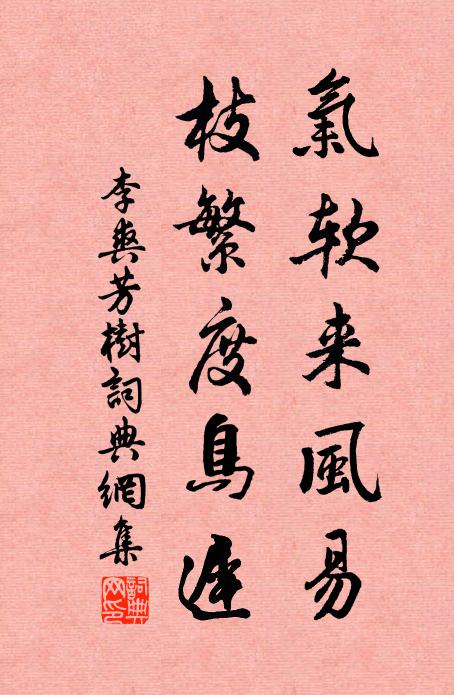 氣軟来風易
枝繁度鳥遲
李爽芳樹詞典網集
詞典網印